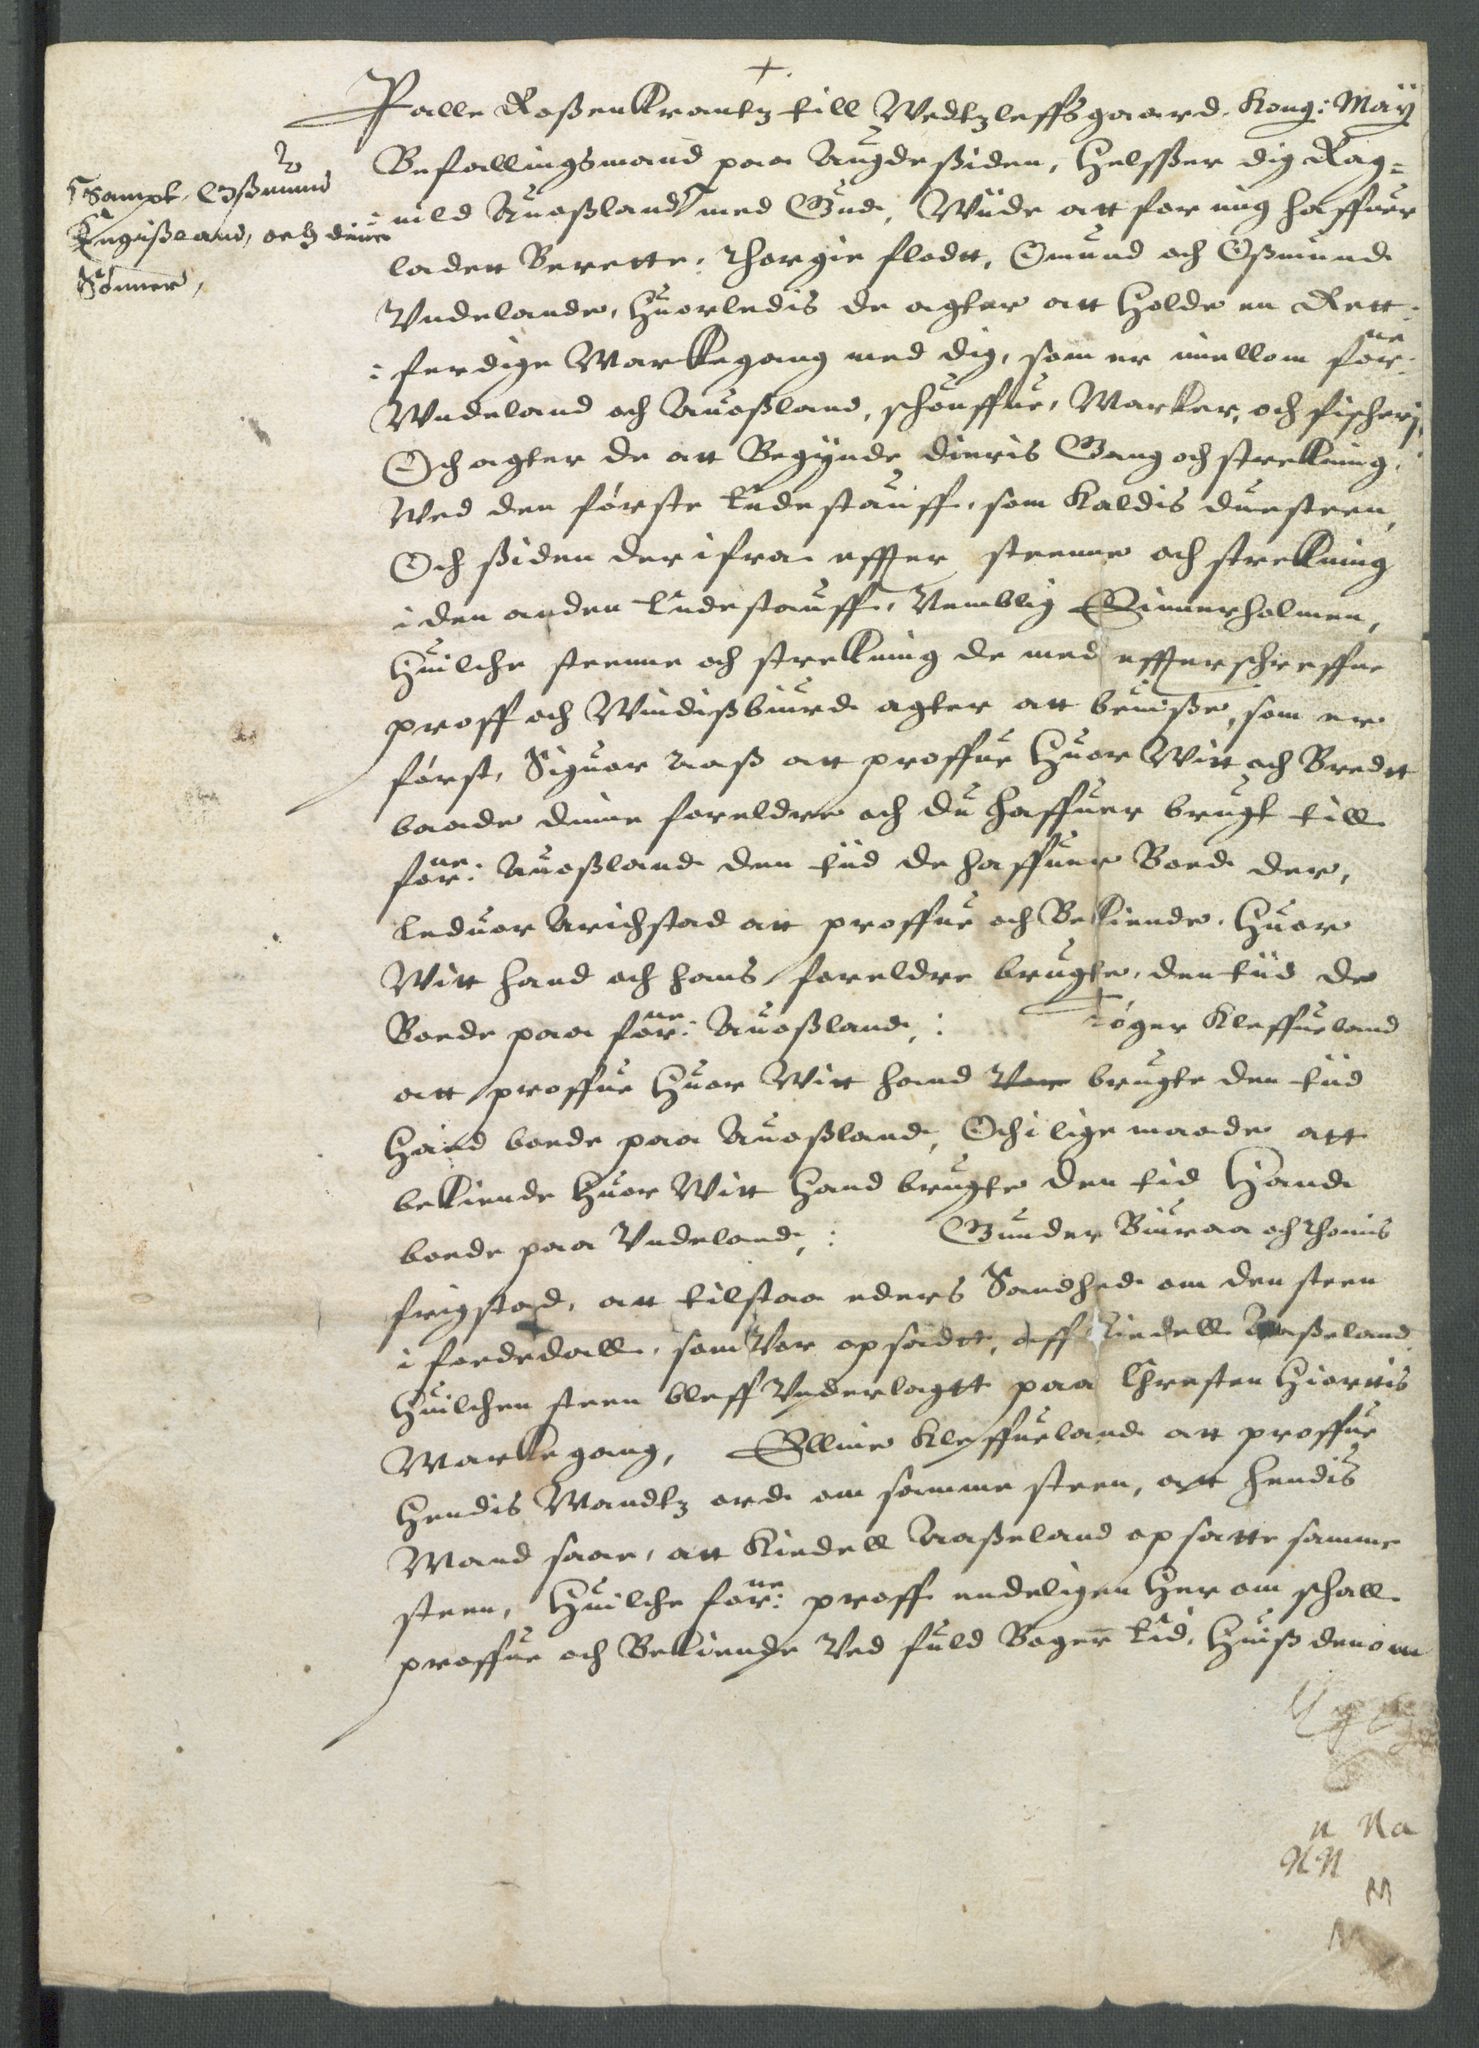 +
Palle Roßenkrantz till Wedtzleffsgaard, Kong: May
Befallingsmand paa Augdesiden, Helsßer dig Rag-
nild Auoßland med Gud, Wiide att for mig haffuer
Sampt. Oßmund
Engeßland, och diine
Sønner,
ladett Berette, Thorgie flodtt, Omund och Oßmund
Vndelande, Huorledis de agter att Holde en Rett:
:ferdige Markegang med dig, som er imellom forne:
Wndeland och Auoßland, schouffue, Marker, och fischerj,
Och agter de att Begynde dieris Gang och strekning,
Wed den første Endestauff, som Kaldis duesteen,
Och ßiden der ifra effter steenne och strekning
i den anden Endestauff, Nemblig Einnerholmen,
Huilche steenne och strekning de med effterschreffne
proff och Windißbiurd agter att beuiße, som er
først, Siguor Aaß att proffue Huor Witt och Bredtt
baade diine foreldre och du haffuer brugt till
forne: Auoßland den tiid de haffuer Boed der,
Leduor Arichstad att proffue och Bekiende, Huor
Witt hand och hans foreldre brugte, den tiid de
Boede paa forne: Auoßland,: Tøger Kleffueland
att proffue Huor Witt hand brugte den tiid
Hand boede paa Auoßland, Och i lige maade att
bekiende Huor Witt Hand brugte den tid Hand
boede paa Vndeland,: Gunder Biuraa och Thomis
frigstad, att tilstaa eders Sandhed om den steen
i fordedall, som Var opsadtt, aff Kiedell Aaßeland
Huilchen steen bleff Nederlagtt paa Chresten Hiortis
Markegang, Elline Kleffueland att proffue
Hendis Mandtz ord om samme steen, att hendis
Mand saae, att Kiedell Aaßeland opsatte samme
steen, Huilche forne: proff endeligen Her om schall
proffue och Bekiende Ved fuld Boger Eid, Huiß dennom
n Na
N N
M
M